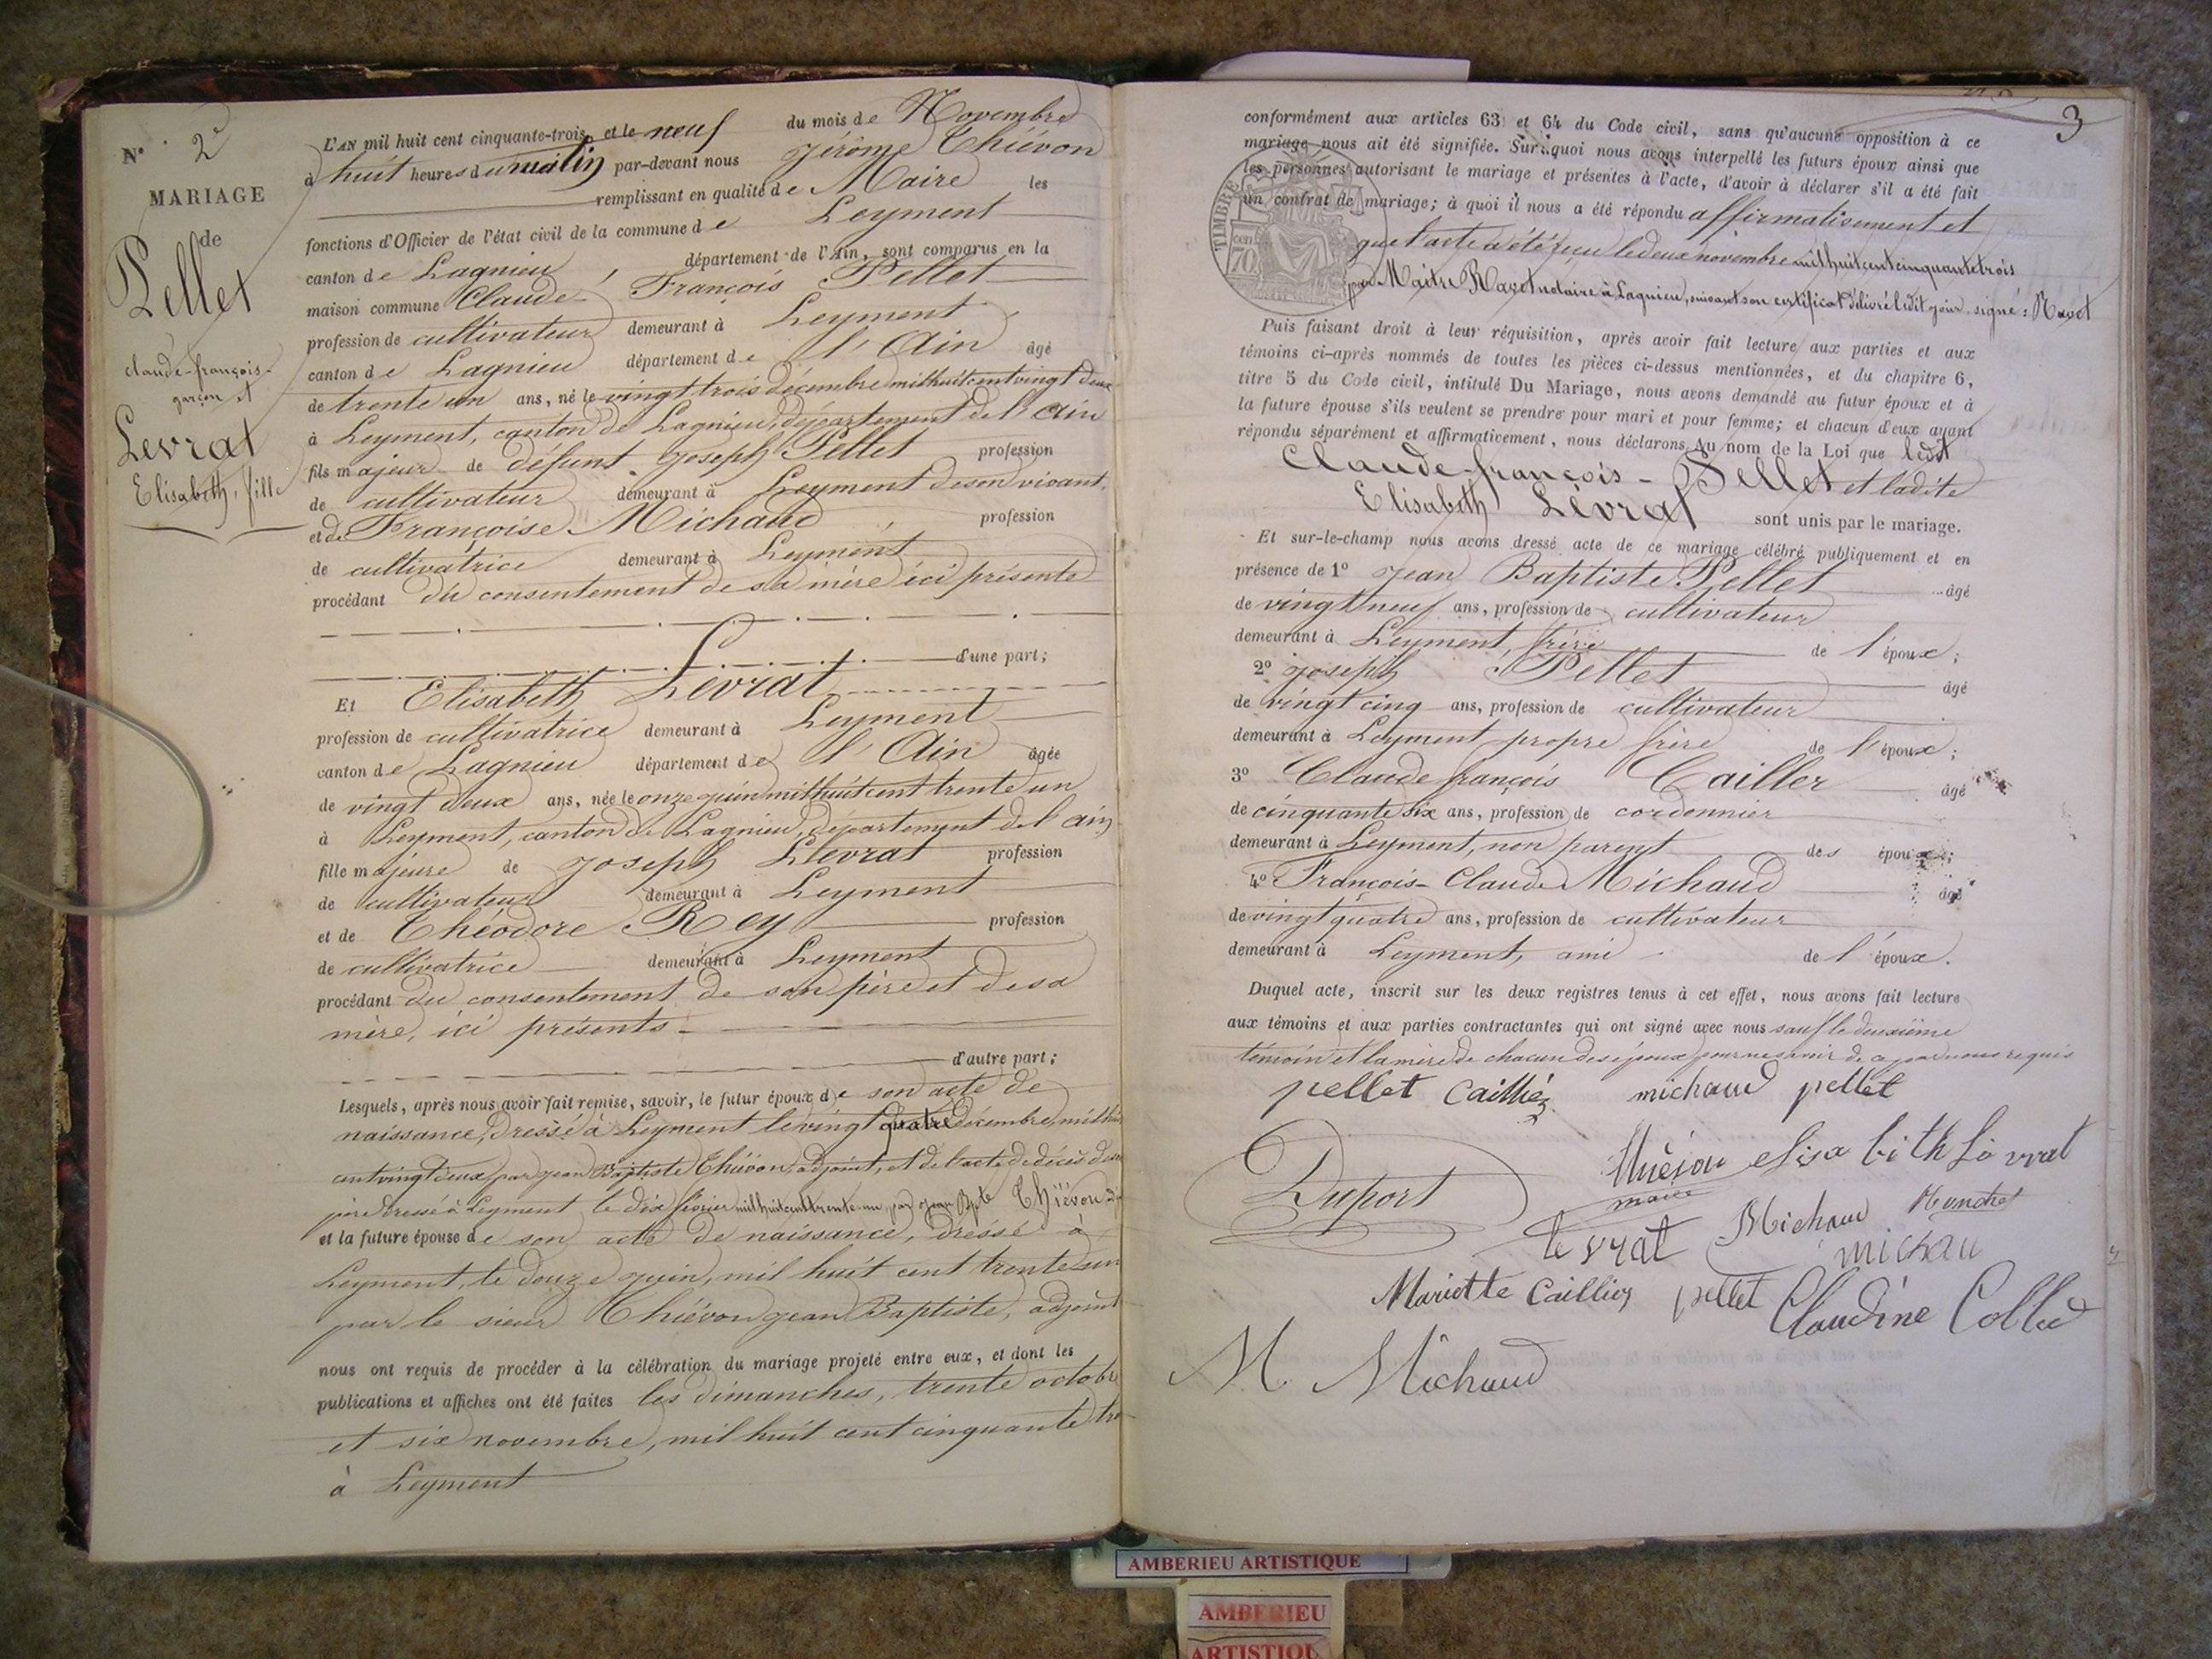 N° 2
MARIAGE
de
Pellet
claude-françois-
garçon et
Levrat
Elisabeth, fille
L'AN mil huit cent cinquante-trois et le neuf du mois de Novembre
à huit heures du matin par-devant nous Jérôme Thiévon
remplissant en qualité de Maire les
fonctions d'Officier de l'état civil de la commune de Leyment
canton de Lagnieu, département de l'Ain, sont comparus en la
maison commune Claude François Pellet
profession de cultivateur demeurant à Leyment
canton de Lagnieu département de l'Ain âgé
de trente un ans, né le vingt trois décembre mil huit cent vingt deux
à Leyment, canton de Lagnieu, département de l'Ain
fils majeur de défunt Joseph Pellet profession
de cultivateur demeurant à Leyment de son vivant,
et de Françoise Michaud profession
de cultivatrice demeurant à Leyment
procédant du consentement de sa mère ici présente
d'une part;
Et Elisabeth Levrat
profession de cultivatrice demeurant à Leyment
canton de Lagnieu département de l'Ain âgée
de vingt deux ans, née le onze juin mil huit cent trente un
à Leyment, canton de Lagnieu, département de l'ain
fille majeure de Joseph Levrat profession
de cultivateur demeurant à Leyment
et de Théodore Rey profession
de cultivatrice demeurant à Leyment
procédant du consentement de son père et de sa
mère, ici présents
d'autre part;
Lesquels, après nous avoir fait remise, savoir, le futur époux de son acte de
naissance, dressé à Leyment le vingt quatre décembre, mil huit
cent vingt deux, par Jean Baptiste Thiévon, adjoint, et de l'acte de décès de son
père dressé à Leyment le dix février mil huit cent trente un, par Jean Bpte Thiévon
et la future épouse de son acte de naissance, dressé à
Leyment, le douze juin, mil huit cent trente un
par le sieur Thiévon Jean Baptiste, adjoint
nous ont requis de procéder à la célébration du mariage projeté entre eux, et dont les
publications et affiches ont été faites les dimanches, trente octobre
et six novembre, mil huit cent cinquante tro
à Leyment
3
conformément aux articles 63 et 64 du Code civil, sans qu'aucune opposition à ce
mariage nous ait été signifiée. Sur quoi nous avons interpellé les futurs époux ainsi que
les personnes autorisant le mariage et présentes à l'acte, d'avoir à déclarer s'il a été fait
un contrat de mariage; à quoi il nous a été répondu affirmativement et
que l'acte a été reçu le deux novembre mil huit cent cinquante trois
par Maitre Ravet notaire à Lagnieu, suivant son certificat délivré ledit jour signé: Ravet
TIMBRE
cen
70
Puis faisant droit à leur réquisition, après avoir fait lecture aux parties et aux
témoins ci-après nommés de toutes les pièces ci-dessus mentionnées, et du chapitre 6,
titre 5 du Code civil, intitulé Du Mariage, nous avons demandé au futur époux et à
la future épouse s'ils veulent se prendre pour mari et pour femme; et chacun d'eux ayant
répondu séparément et affirmativement, nous déclarons Au nom de la Loi que ledit
Claude-françois-Pellet et ladite
Elisabeth Levrat sont unis par le mariage.
Et sur-le-champ nous avons dressé acte de ce mariage célébré publiquement et en
présence de 1° Jean Baptiste Pellet âgé
de vingt neuf ans, profession de cultivateur
demeurant à Leyment, frère de l'époux;
2° Joseph Pellet âgé
de vingt cinq ans, profession de cultivateur
demeurant à Leyment propre frère de l'époux;
3° Claude françois Cailler âgé
de cinquante six ans, profession de cordonnier
demeurant à Leyment, non parent des époux;
4° François-Claude Michaud âgé
de vingt quatre ans, profession de cultivateur
demeurant à Leyment, ami de l'époux.
Duquel acte, inscrit sur les deux registres tenus à cet effet, nous avons fait lecture
aux témoins et aux parties contractantes qui ont signé avec nous sauf le deuxième
témoin et la mère de chacun des époux pour ne savoir de ce par nous requis
pellet Cailliez michaud pellet
Duport Thiévon elisa bith Levrat
maire
le vrat Michaud
michau
Mariette Cailliez pellet Claudine Collet
M. Michaud
AMBERIEU ARTISTIQUE
AMBERIEU
ARTISTIQU